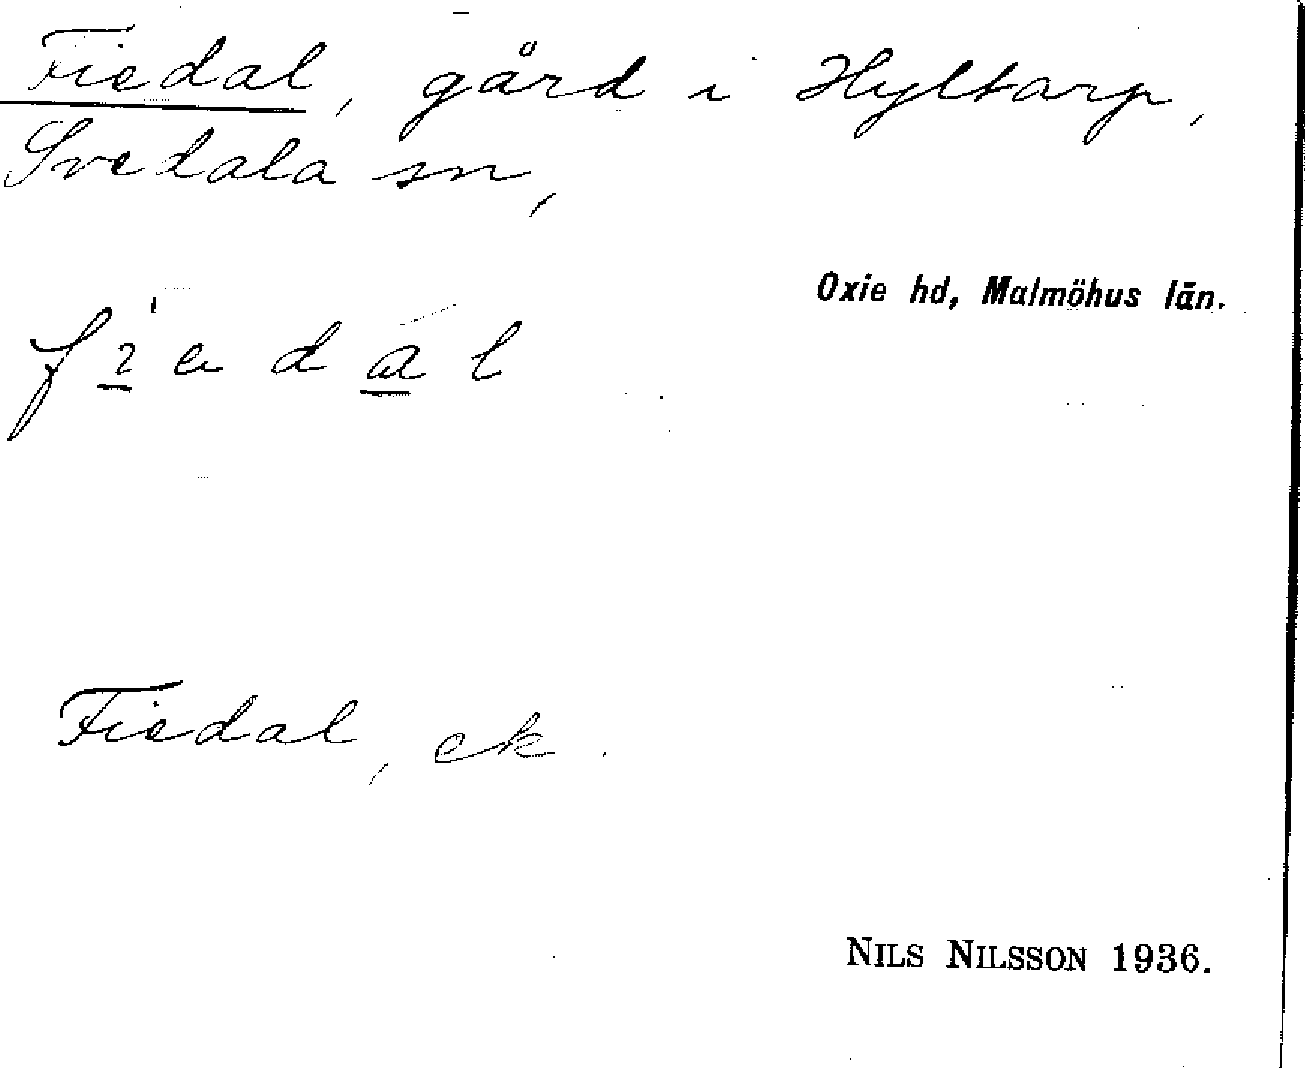 Fiedal, gård i Hyltarp,
Svedala sn,
Oxie hd, Malmöhus län.
Fiedal, ek.
NILS NILSSON 1936.